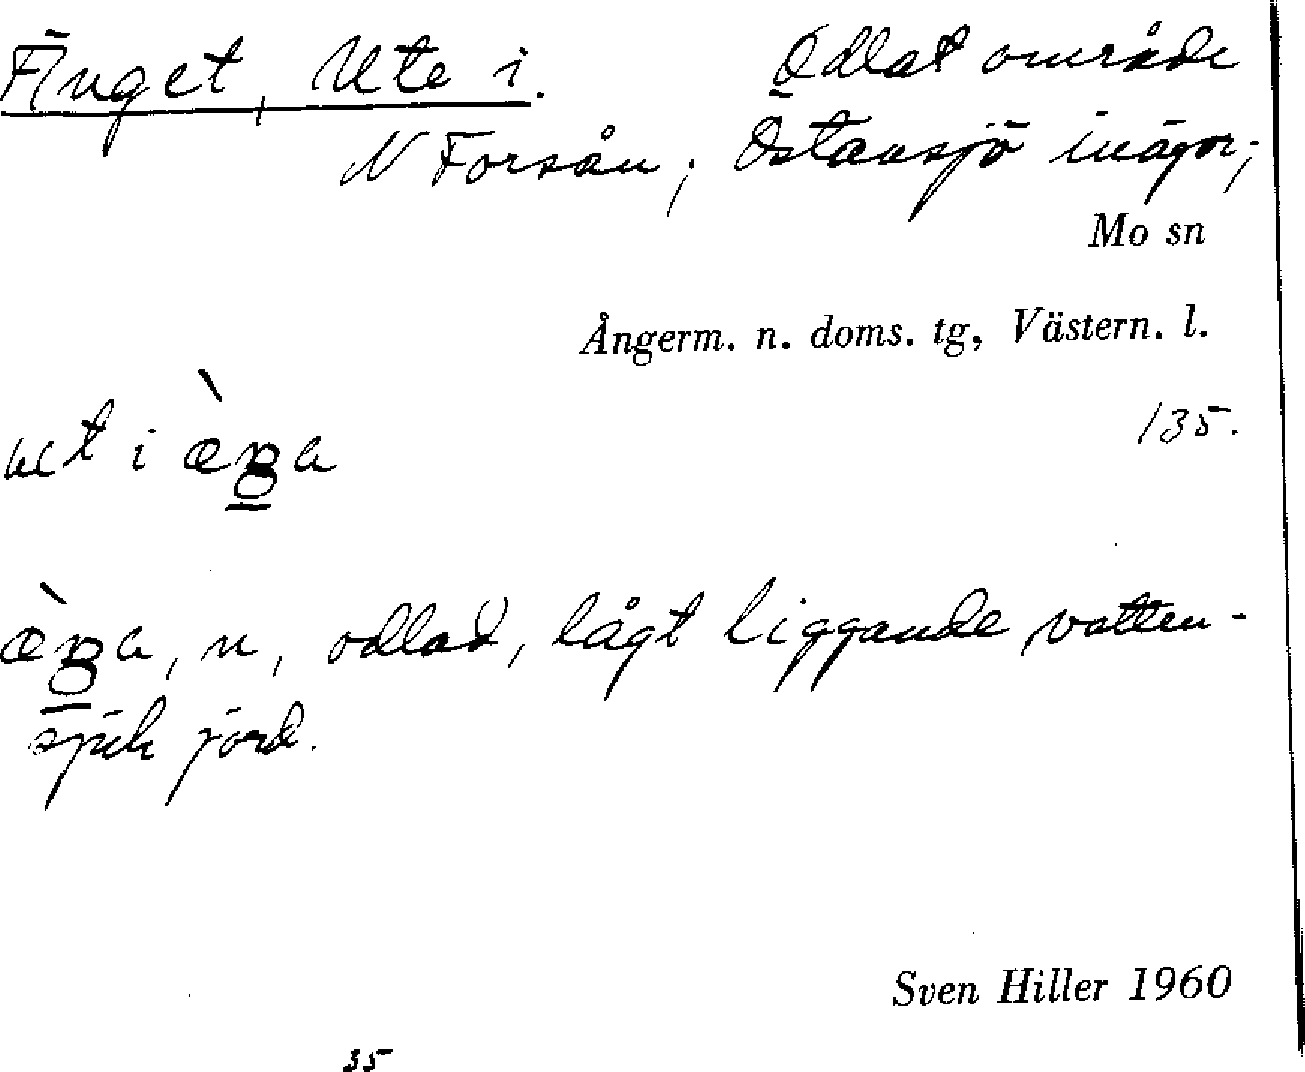 Änget, Ute i. Odlat område
N Forsån; Östansjö inägor;
Mo sn
Ångerm. n. doms. tg, Västern. l.
135.
ut i æ̀ŋa
æ̀ŋa, n, odlad, lågt liggande vatten-
sjuk jord.
Sven Hiller 1960
35